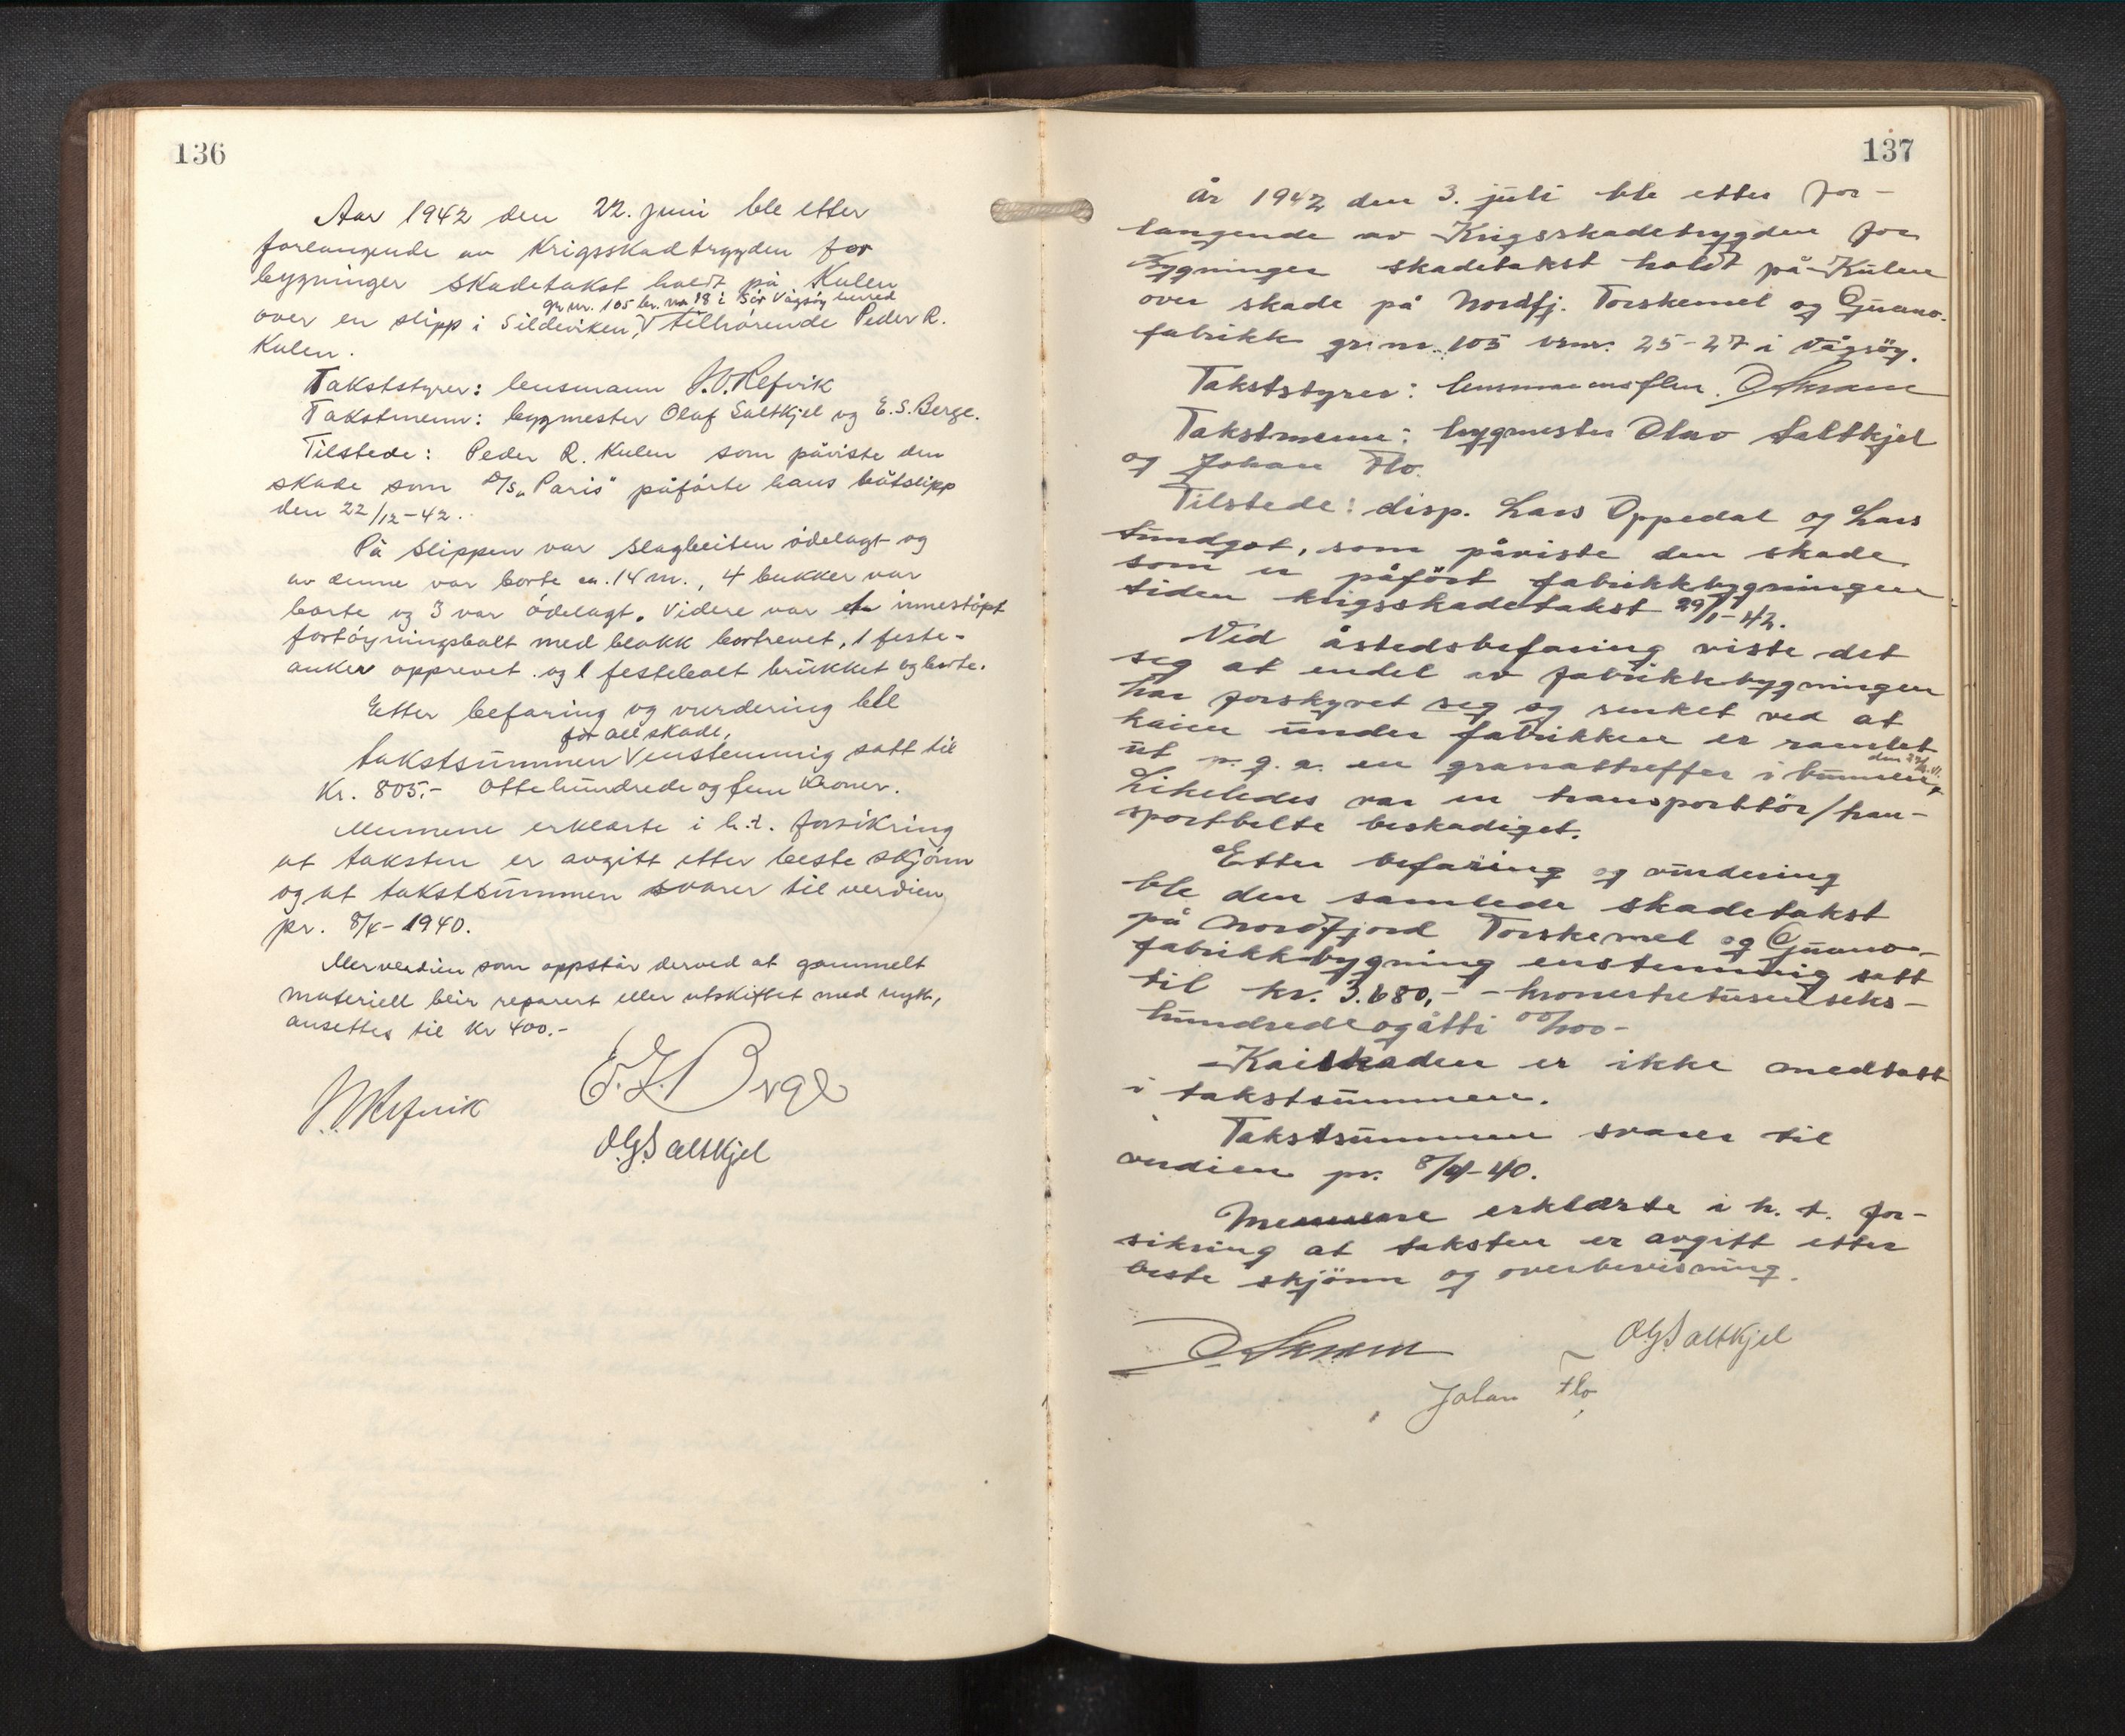 136
Aar 1942 den 22. juni ble etter
forlangende av Krigsskadtrygden for
bygninger skadetakst holdt på Kulen
gr. nr. 105 br. nr. 18 i Sør Vågsøy herred
over en slipp i Sildeviken, V tilhørende Peder R.
Kulen.
Takststyrer: lensmann J. O. Refvik
Takstmenn: bygmester Olaf Saltkjel og E. S. Berge.
Tilstede: Peder R. Kulen som påviste den
skade som D/S "Paris" påførte hans båtslipp
den 22/12-42.
På slippen var slagbeiten ødelagt og
av denne var borte ca. 14 m., 4 bukker var
borte og 3 var ødelagt. Videre var innestöpt
fortöyningsbolt med blokk bortrevet, 1 feste-
anker opprevet og 1 festebolt brukket og borte.
Etter befaring og vurdering ble
for all skade,
takstsummen V enstemmig satt til
Kr. 805.- Ottehundrede og fem kroner.
Mennene erklærte i h.t. forsikring
at taksten er avgitt etter beste skjønn
og at takstsummen svarer til verdien
pr. 8/4-1940.
Merverdien som oppstår derved at gammelt
materiell blir reparert eller utskiftet med nytt,
ansettes til Kr 400.-
J. O. Refvik
E. S. Berge
O.G. Saltkjel
137
År 1942 den 3. juli ble etter for-
langende av Krigsskadetrygden for
bygninger skadetakst holdt på Kulen
over skade på Nordfj. Torskemel og Guano-
fabrikk gr. nr. 105 brnr. 25-27 i Vågsøy.
Takststyrer: lensmannsflm. D. Skram
Takstmenn: bygmester Olav Saltkjel
og Johan Flo.
Tilstede: disp. Lars Oppedal og Lars
Sundgot, som påviste den skade
som er påført fabrikkbygningen
siden krigsskadetakst 29/1-42.
Ved åstedsbefaring viste det
seg at endel av fabrikkbygningen
har forskyvet seg og senket ved at
kaien under fabrikken er ramlet
ut p. g. a. en granattreffer i bunnen,
Likeledes var en transporttör/tran-
sportbelte beskadiget.
Etter befaring og vurdering
ble den samlede skadetakst
på Nordfjord Torskemel og Guano-
fabrikkbygning enstemmig satt
til kr. 3.680,- - kronertretusenseks-
hundredeogåtti 00/100-
Kaiskaden er ikke medtatt
i takstsummen.
Takstsummen svarer til
verdien pr. 8/4-40.
Mennene erklærte i h. t. for-
sikring at taksten er avgitt etter
beste skjönn og overbevisning.
D. Skram
O.G. Saltkjel
Johan Flo